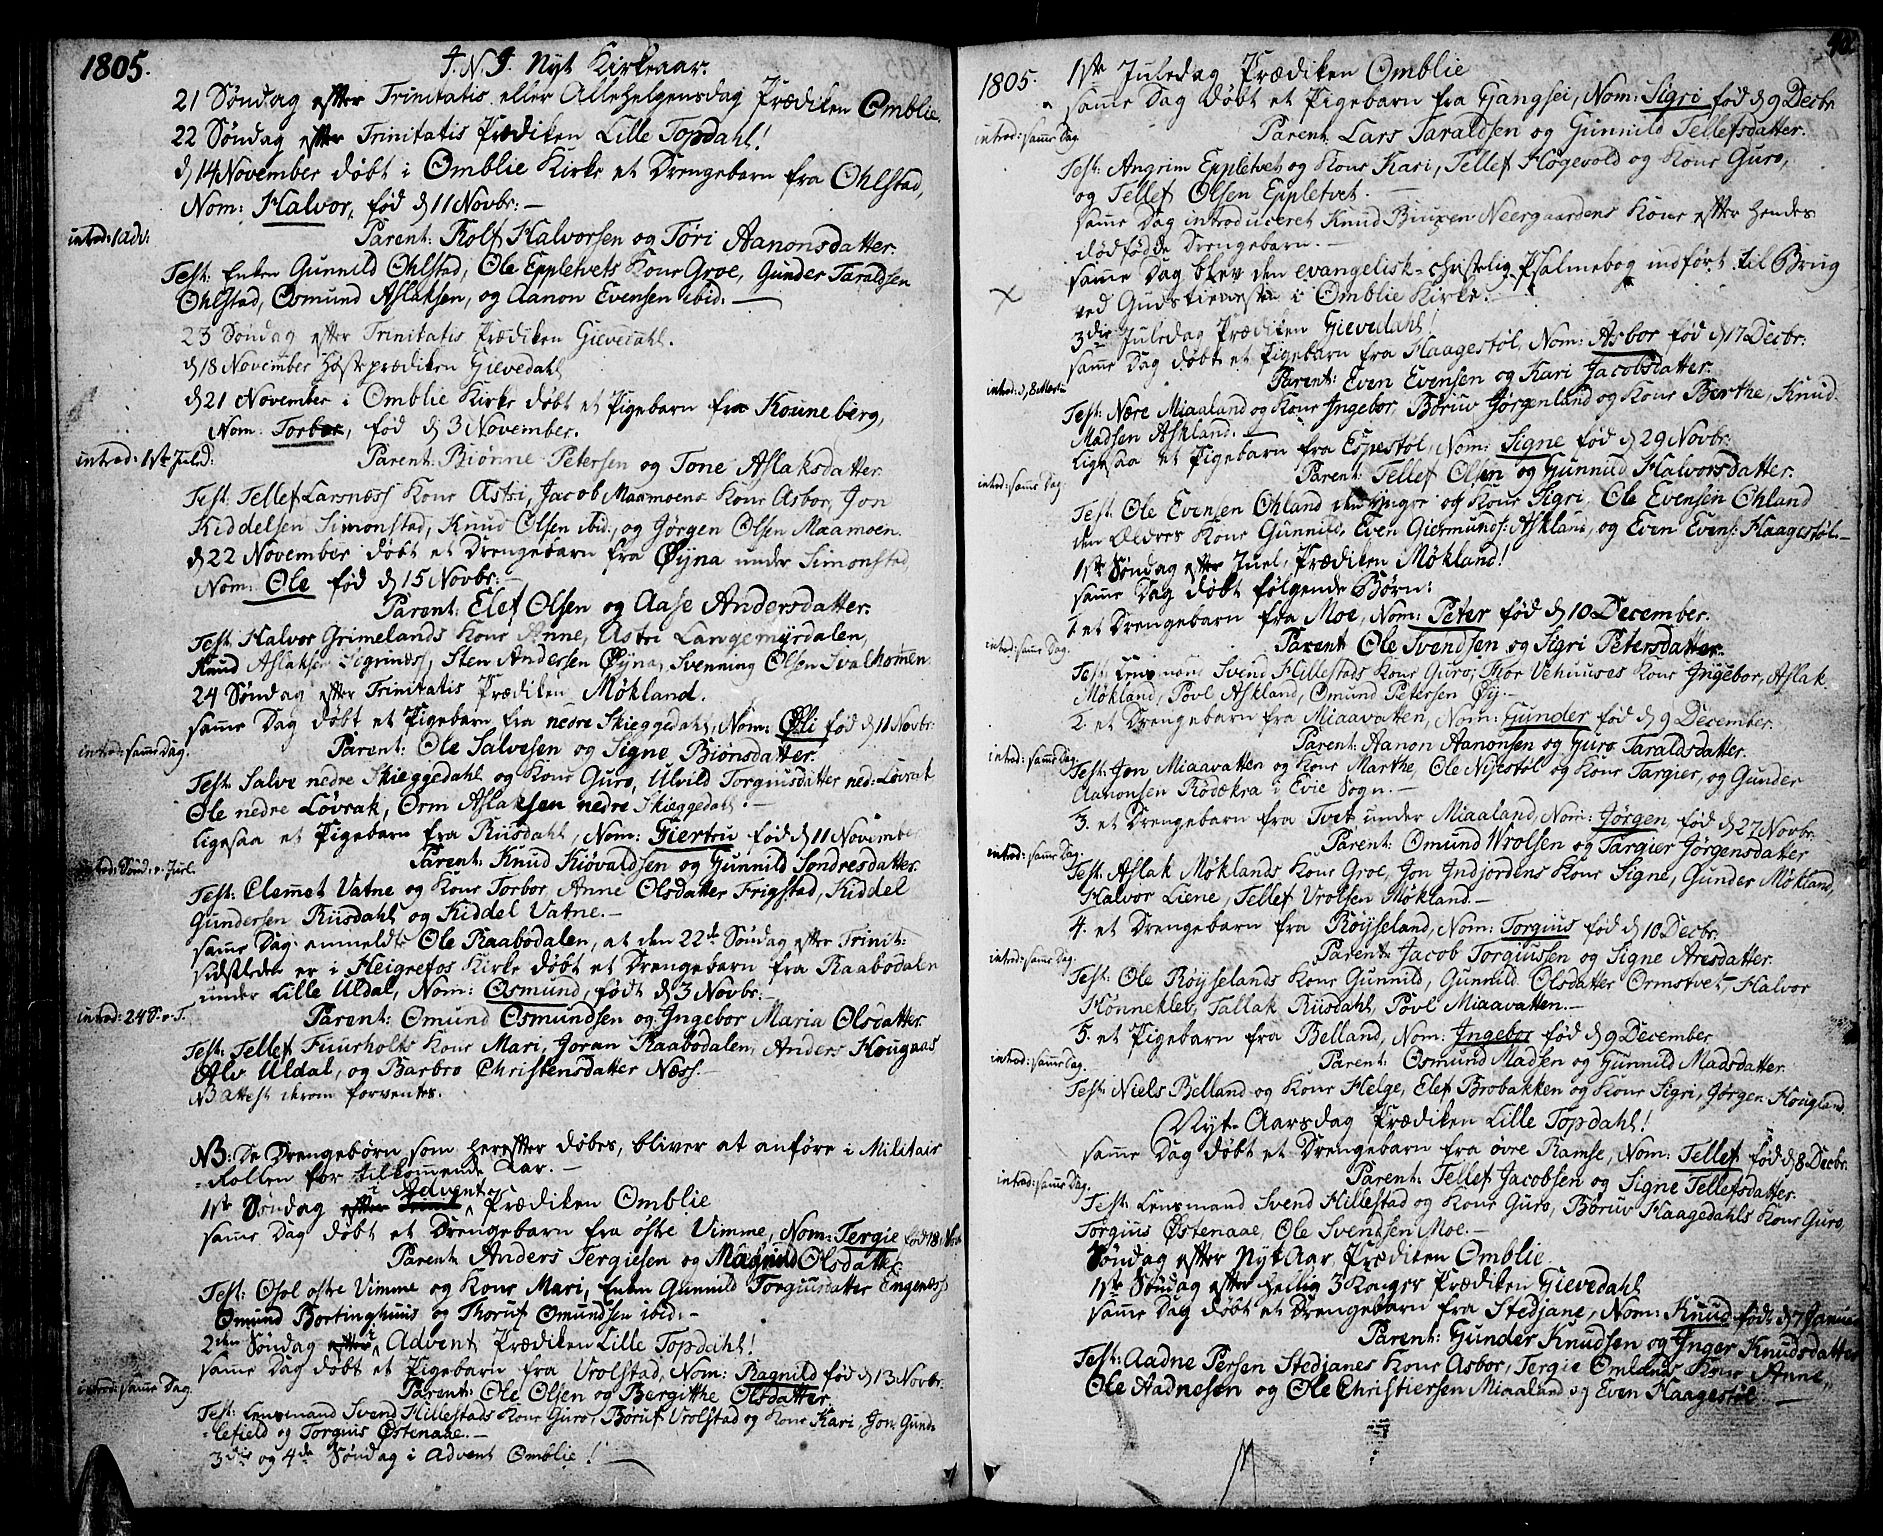 1805.
J. N. J. Nyt Kirkeaar.
21 Søndag efter Trinitatis eller Allehelgensdag Prædiken Omblie.
22 Søndag efter Trinitatis Prædiken Lille Topdahl!
d 14 November døbt i Omblie Kirke et Drengebarn fra Ohlstad,
Nom: Halvor, fød d 11 Novbr: —
introd: 1 Adv:
Parent: Rolf Halvorsen og Tøri Aanonsdatter.
Test: Enken Gunnild Ohlstad, Ole Eppletvets Kone Groe, Gunder Taraldsen
Ohlstad, Osmund Aslaksen, og Aanon Evensen ibid. —
23 Søndag efter Trinitatis Prædiken Gievedahl.
d 18 November Høstprædiken Gievedahl
d 21 November i Omblie Kirke døbt et Pigebarn fra Kouneberg,
Nom: Torbor, fød d 3 November.
introd: 1ste Juld:
Parent: Biønne Petersen og Tone Aslaksdatter
Test: Tellef Larsnæss Kone Astri, Jacob Maamoens Kone Asbor, Jon
Kiddelsen Simonstad, Knud Olsen ibid:, og Jørgen Olsen Maamoen.
d 22 November døbt et Drengebarn fra Øyna under Simonstad
Nom: Ole fød d 15 Novbr: —
Parent: Elef Olsen og Aase Andersdatter.
Test: Halvor Grimelands Kone Anne, Astri Langemyrdalen,
Knud Aslaksen Sigrinæss, Sten Andersen Øyna, Svenning Olsen Svalhomen.
24 Søndag efter Trinitatis Prædiken Møkland.
samme Dag døbt et Pigebarn fra nedre Skieggedahl, Nom: Øli fød d 11 Novbr
introd: samme Dag.
Parent: Ole Salvesen og Signe Biørnsdatter.
Test: Salve nedre Skieggedahl og Kone Guro, Ulvild Torgiusdatter ned: Løvrak
Ole nedre Løvrak, Orm Aslaksen nedre Skieggedahl! —
ligesaa et Pigebarn fra Riisdahl, Nom: Giertru fød d 11 November
introd: Sønd: e. Juel.
Parent: Knud Kiøvaldsen og Gunnild Sondresdatter.
Test: Clemet Vatne og Kone Torbor, Anne Olsdatter Frigstad, Kiddel
Gundersen Riisdahl og Kiddel Vatne. —
samme Dag anmeldte Ole Raabodalen, at den 22de Søndag efter Trinit:
sidstleden er i Heigrefos Kirke døbt et Drengebarn fra Raabodalen
under Lille Uldal, Nom: Osmund, født d 3 Novbr: —
introd: 24 S. e. T.
Parent: Omund Osmundsen og Ingebor Maria Olsdatter.
Test: Tellef Fuurholts Kone Mari, Joran Raabodalen, Anders Hougaas
Alv Uldal, og Barbro Christensdatter Næss. —
NB Attest derom forventes.
NB: De Drengebørn som herefter døbes, bliver at anføre i Militair
-Rollen for tilkommende Aar. —
1ste Søndag i Advent Prædiken Omblie
samme Dag døbt et Drengebarn fra østre Vimme, Nom: Tergie fød 18 Nov
Parent: Anders Tergiesen og Magnild Olsdatter.
Test: Osol østre Vimme og Kone Mari, Enken Gunnild Torgiusdatter Engenæss
Omund Bortinghuus og Thoruf Omundsen ibid: —
2den Søndag i Advent Prædiken Lille Topdahl!
samme Dag døbt et Pigebarn fra Vrolstad, Nom: Ragnild fød d 13 Novbr.
introd: samme Dag.
Parent: Ole Olsen og Bergitthe Olsdatter.
Test: Lensmand Svend Hillestads Kone Guro, Børuf Vrolstad og Kone Kari, Jon Gunde
-lefield og Torgius Østenaae. —
3die og 4de Søndag i Advent Omblie! —
1805.
1ste Juledag Prædiken Omblie
samme Dag døbt et Pigebarn fra Gangsei, Nom: Sigri fød d 9 Decbr
introd: samme Dag.
Parent: Lars Taraldsen og Gunnild Tellefsdatter.
Test: Angrim Eppletvet og Kone Kari, Tellef Høgevold og Kone Guro,
og Tellef Olsen Eppletvet. —
samme Dag introduceret Knud Neergaardens Kone efter hendes
dødfødde Drengebarn. —
samme Dag blev den evangelisk-christelig Psalmebog indført til Brug
ved Gudstienesten i Omblie Kirke. —
3die Juledag Prædiken Gievedahl!
samme Dag døbt et Pigebarn fra Haagestøl, Nom: Asbor fød d 17 Decbr:
introd: d 8 Martii
Parent: Even Evensen og Kari Jacobsdatter.
Test: Nære Miaaland og Kone Ingebor, Børuv Jørgenland og Kone Berthe, Knud
Madsen Askland. —
ligesaa et Pigebarn fra Espestøl, Nom: Signe fød d 29 Novbr.
introd: samme Dag.
Parent: Tellef Olsen og Gunnild Halvorsdatter.
Test: Ole Evensen Ohland den yngre og Kone Sigri, Ole Evensen Ohland
den Ældres Kone Gunnild, Even Giermunds: Askland, og Even Evens: Haagestøl. —
1ste Søndag efter Juel, Prædiken Møkland!
samme Dag døbt følgende Børn:
1. et Drengebarn fra Moe, Nom: Peter fød d 10 December.
introd: samme Dag.
Parent Ole Svendsen og Sigri Petersdatter.
Test: Lensmand Svend Hillestads Kone Guro, Thor Vehuuses Kone Ingebor, Aslak
Møkland, Povl Askland, Omund Petersen Øy. —
2. et Drengebarn fra Miaavatten, Nom: Gunder fød d 9 December.
introd: samme Dag.
Parent: Aanon Aanonsen og Guro Taraldsdatter.
Test: Jon Miaavatten og Kone Marthe, Ole Nisestøl og Kone Targier, og Gunder
Aanonsen Rødækra i Evie Sogn. —
3. et Drengebarn fra Tvet under Miaaland, Nom: Jørgen, fød d 27 Novbr.
introd: samme Dag.
Parent: Omund Wrolsen og Targier Jørgensdatter
Test: Aslak Møklands Kone Groe, Jon Indjordens Kone Signe, Gunder Møkland,
Halvor Liene, Tellef Vrolsen Møkland. —
4. et Drengebarn fra Røysseland, Nom: Torgius fød d 10 Decbr.
introd: samme Dag.
Parent: Jacob Torgiussen og Signe Aresdatter.
Test: Ole Røysselands Kone Gunnild, Gunnild Olsdatter Ormstvet, Halvor
Hønnekløv, Tallak Riisdahl, Povl Miaavatten. —
5. et Pigebarn fra Belland, Nom: Ingebor fød d 9 December
introd: samme Dag.
Parent: Osmund Madsen og Gunnild Madsdatter.
Test: Niels Belland og Kone Helge, Elef Brobakken og Kone Sigri, Jørgen Hougland.
Nyt-Aarsdag Prædiken Lille Topdahl!
samme Dag døbt et Drengebarn fra øvre Ramse, Nom: Tellef fød d 8 Decbr.
introd: samme Dag.
Parent: Tellef Jacobsen og Signe Tellefsdatter.
Test: Lensmand Svend Hillestad og Kone Guro, Børuv Haagedahls Kone Guro,
Torgius Østenaae, Ole Svendsen Moe. —
Søndag efter Nyt Aar, Prædiken Omblie
1ste Søndag efter hellig 3 Konger Prædiken Gievedahl
samme Dag døbt et Drengebarn fra Stedjane, Nom: Knud født d 7 Januar
Parent: Gunder Knudsen og Inger Knudsdatter
Test: Aadne Persen Stedjanes Kone Asbor, Tergie Omlands Kone Anne,
Ole Aadnesen og Ole Christiersen Miaaland og Even Haagestøl. —